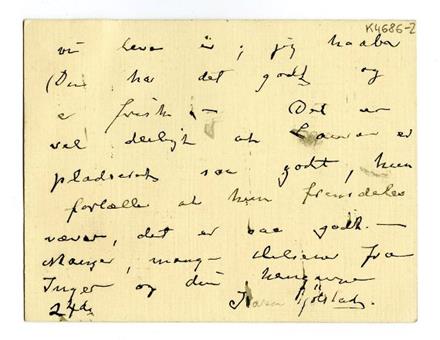 K4686-2
vi leve i; jeg haaber
Du har det godt og
er frisk — Det er
vel deiligt at er
pladseret saa godt, hun
fortælle at hun fremdeles
væver, det er saa godt. —
Mange, mange hilsener fra
Inger og din hengivne
24de Karen